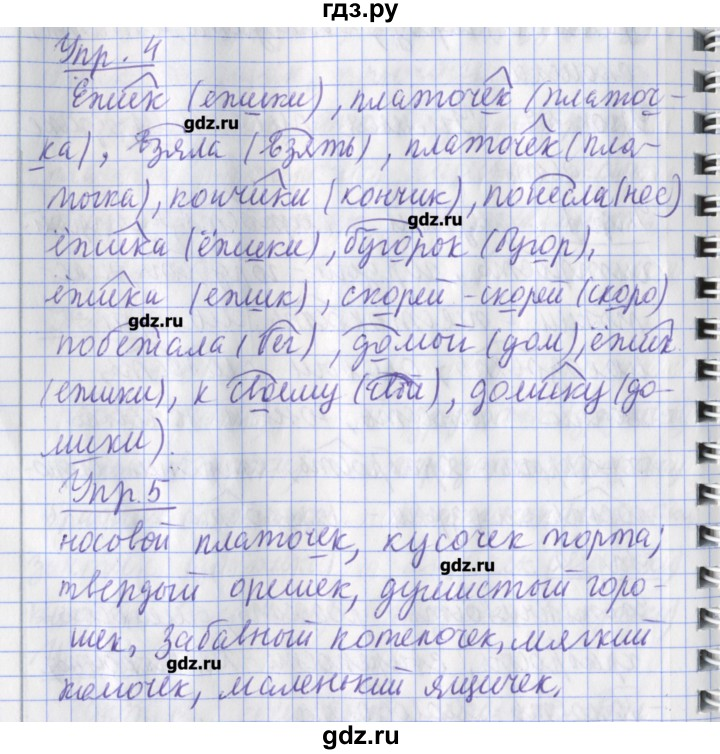 гдз.ру
Упр. 4
Ёжик (ежики), платочек (платоч-
gdz.ru
ка), взяла (взять), платочек (пла-
точка), кончики (кончик), понесла (нес)
gdz.ru
ёжика (ёжики), бугорок (бугор),
ёжика (ежик), скорей-скорей (скоро)
gdz.ru
побежала (бег), домой (дом), ёжик
(ежики), к своему (свой), домику (до-
gdz.ru
мики).
Упр. 5
носовой платочек, кусочек торта,
gdz.ru
твердый орешек, душистый горо-
шек, забавный котеночек, мягкий
gdz.ru
комочек, маленький ящичек,
gdz.ru